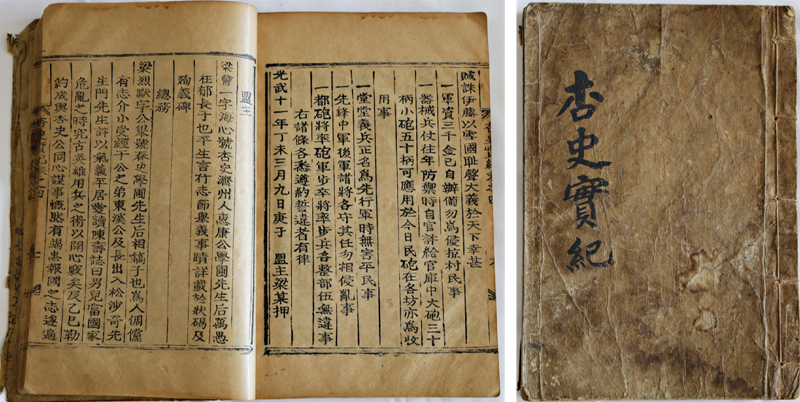 賊誅伊藤以雪國耻聲大義於天下幸甚
一軍資三千金已自辦備勿爲侵掠村民事
一器械兵仗往年防禦時自官詳給官庫中大砲三十
柄小砲五十柄可應用於今日民砲在各坊亦爲收
用事
一堂堂義兵正名爲先行軍時無害平民事
一先鋒中軍後軍諸將各守其任勿相侵亂事
一都砲將率砲軍步卒將率步兵各整部伍無違事
右諸條各悉遵約誓違者有律
光武十一年丁未三月九日庚子 盟主梁某押
盟主
梁會一字海心號杏史濟州人惠康公學圃先生后萬愚
在郁長子也平生言行志節與義事蹟詳載於狀碣及
殉義碑
總務
梁烈默字公學號春史學圃先生后相鎬子也爲人倜儻
有志介小堂經于公之弟東溪公及長出入松沙奇先
生門先生許以氣義平居嘗讀陳壽誌曰男兒當國家
危亂之時究古英雄用兵之術以開心竅矣及乙巳勒
約成與杏史公同心謀事慨然有竭忠報國之志遂遍
杏史實紀